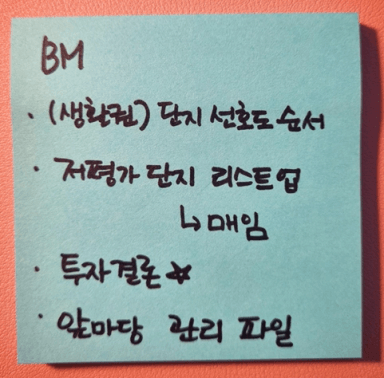 BM
· (생활권) 단지 선호도 순서
· 저평가 단지 리스트업
↳ 매임
· 투자결론 ☆
· 앞마당 관리 파일